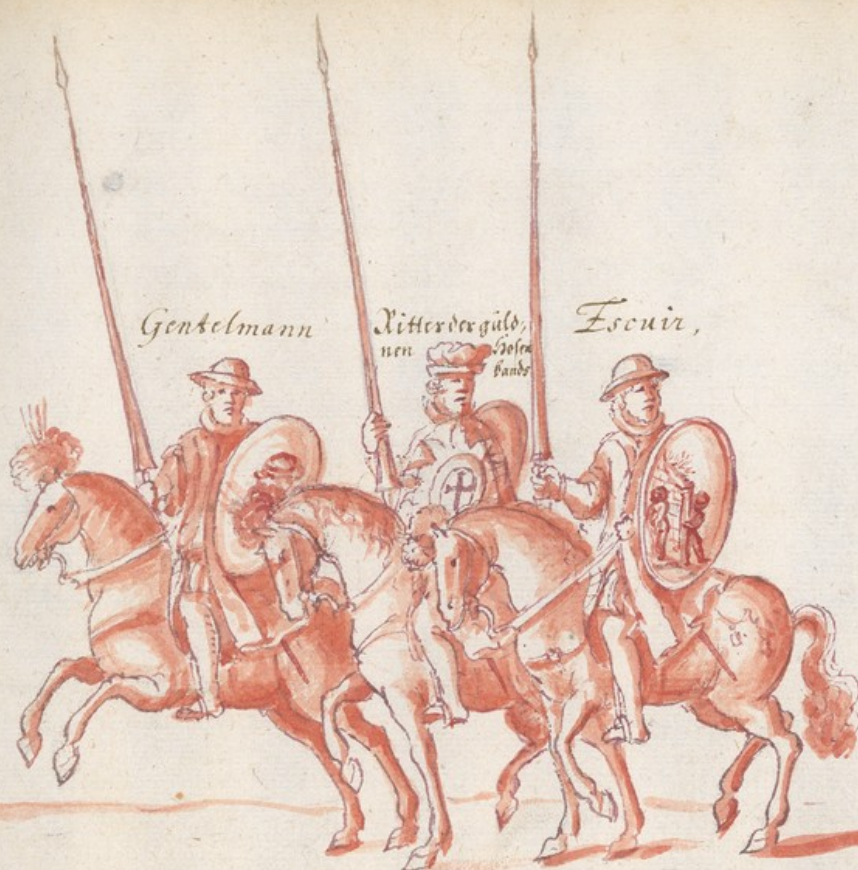 Gentelmann
Ritter der güld,
nen Hosen
bands
Escuir,